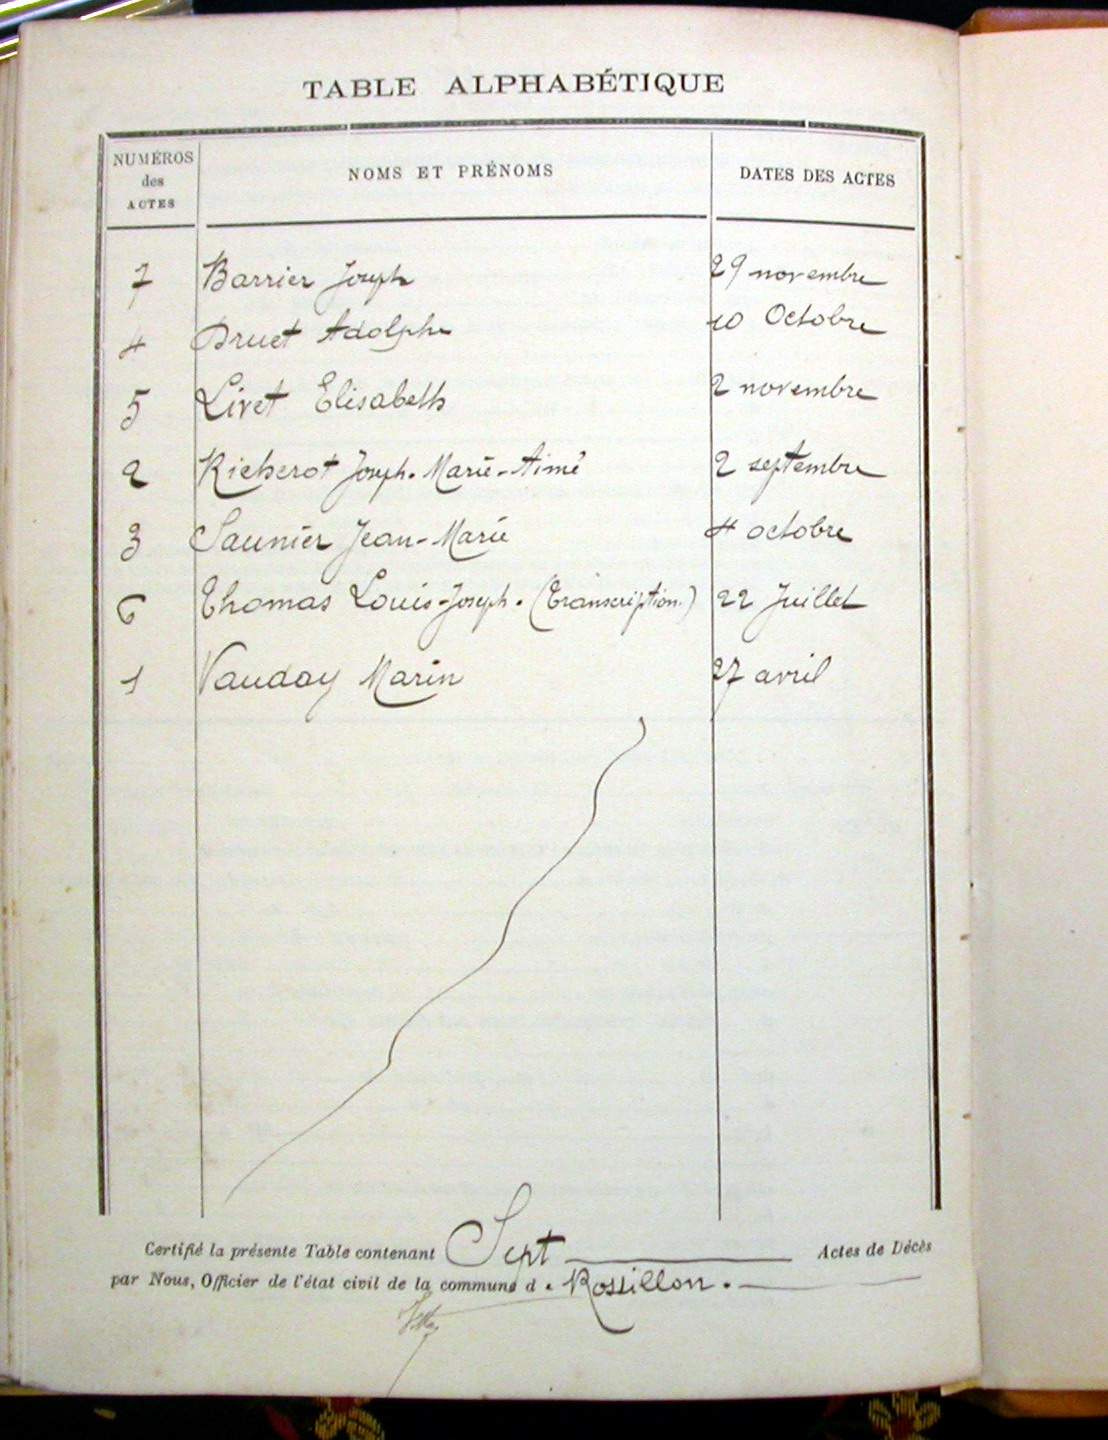 TABLE ALPHABÉTIQUE
NUMÉROS des ACTES NOMS ET PRÉNOMS DATES DES ACTES
7 Barrier Joseph 29 novembre
4 Druet Adolphe 10 Octobre
5 Livet Elisabeth 2 novembre
2 Richerot Joseph-Marie-Aimé 2 septembre
3 Saunier Jean-Marie 4 octobre
6 Thomas Louis-Joseph. (Transcription.) 22 Juillet
1 Vauday Marin 27 avril
Certifié la présente Table contenant Sept Actes de Décès
par Nous, Officier de l'état civil de la commune de Rossillon.